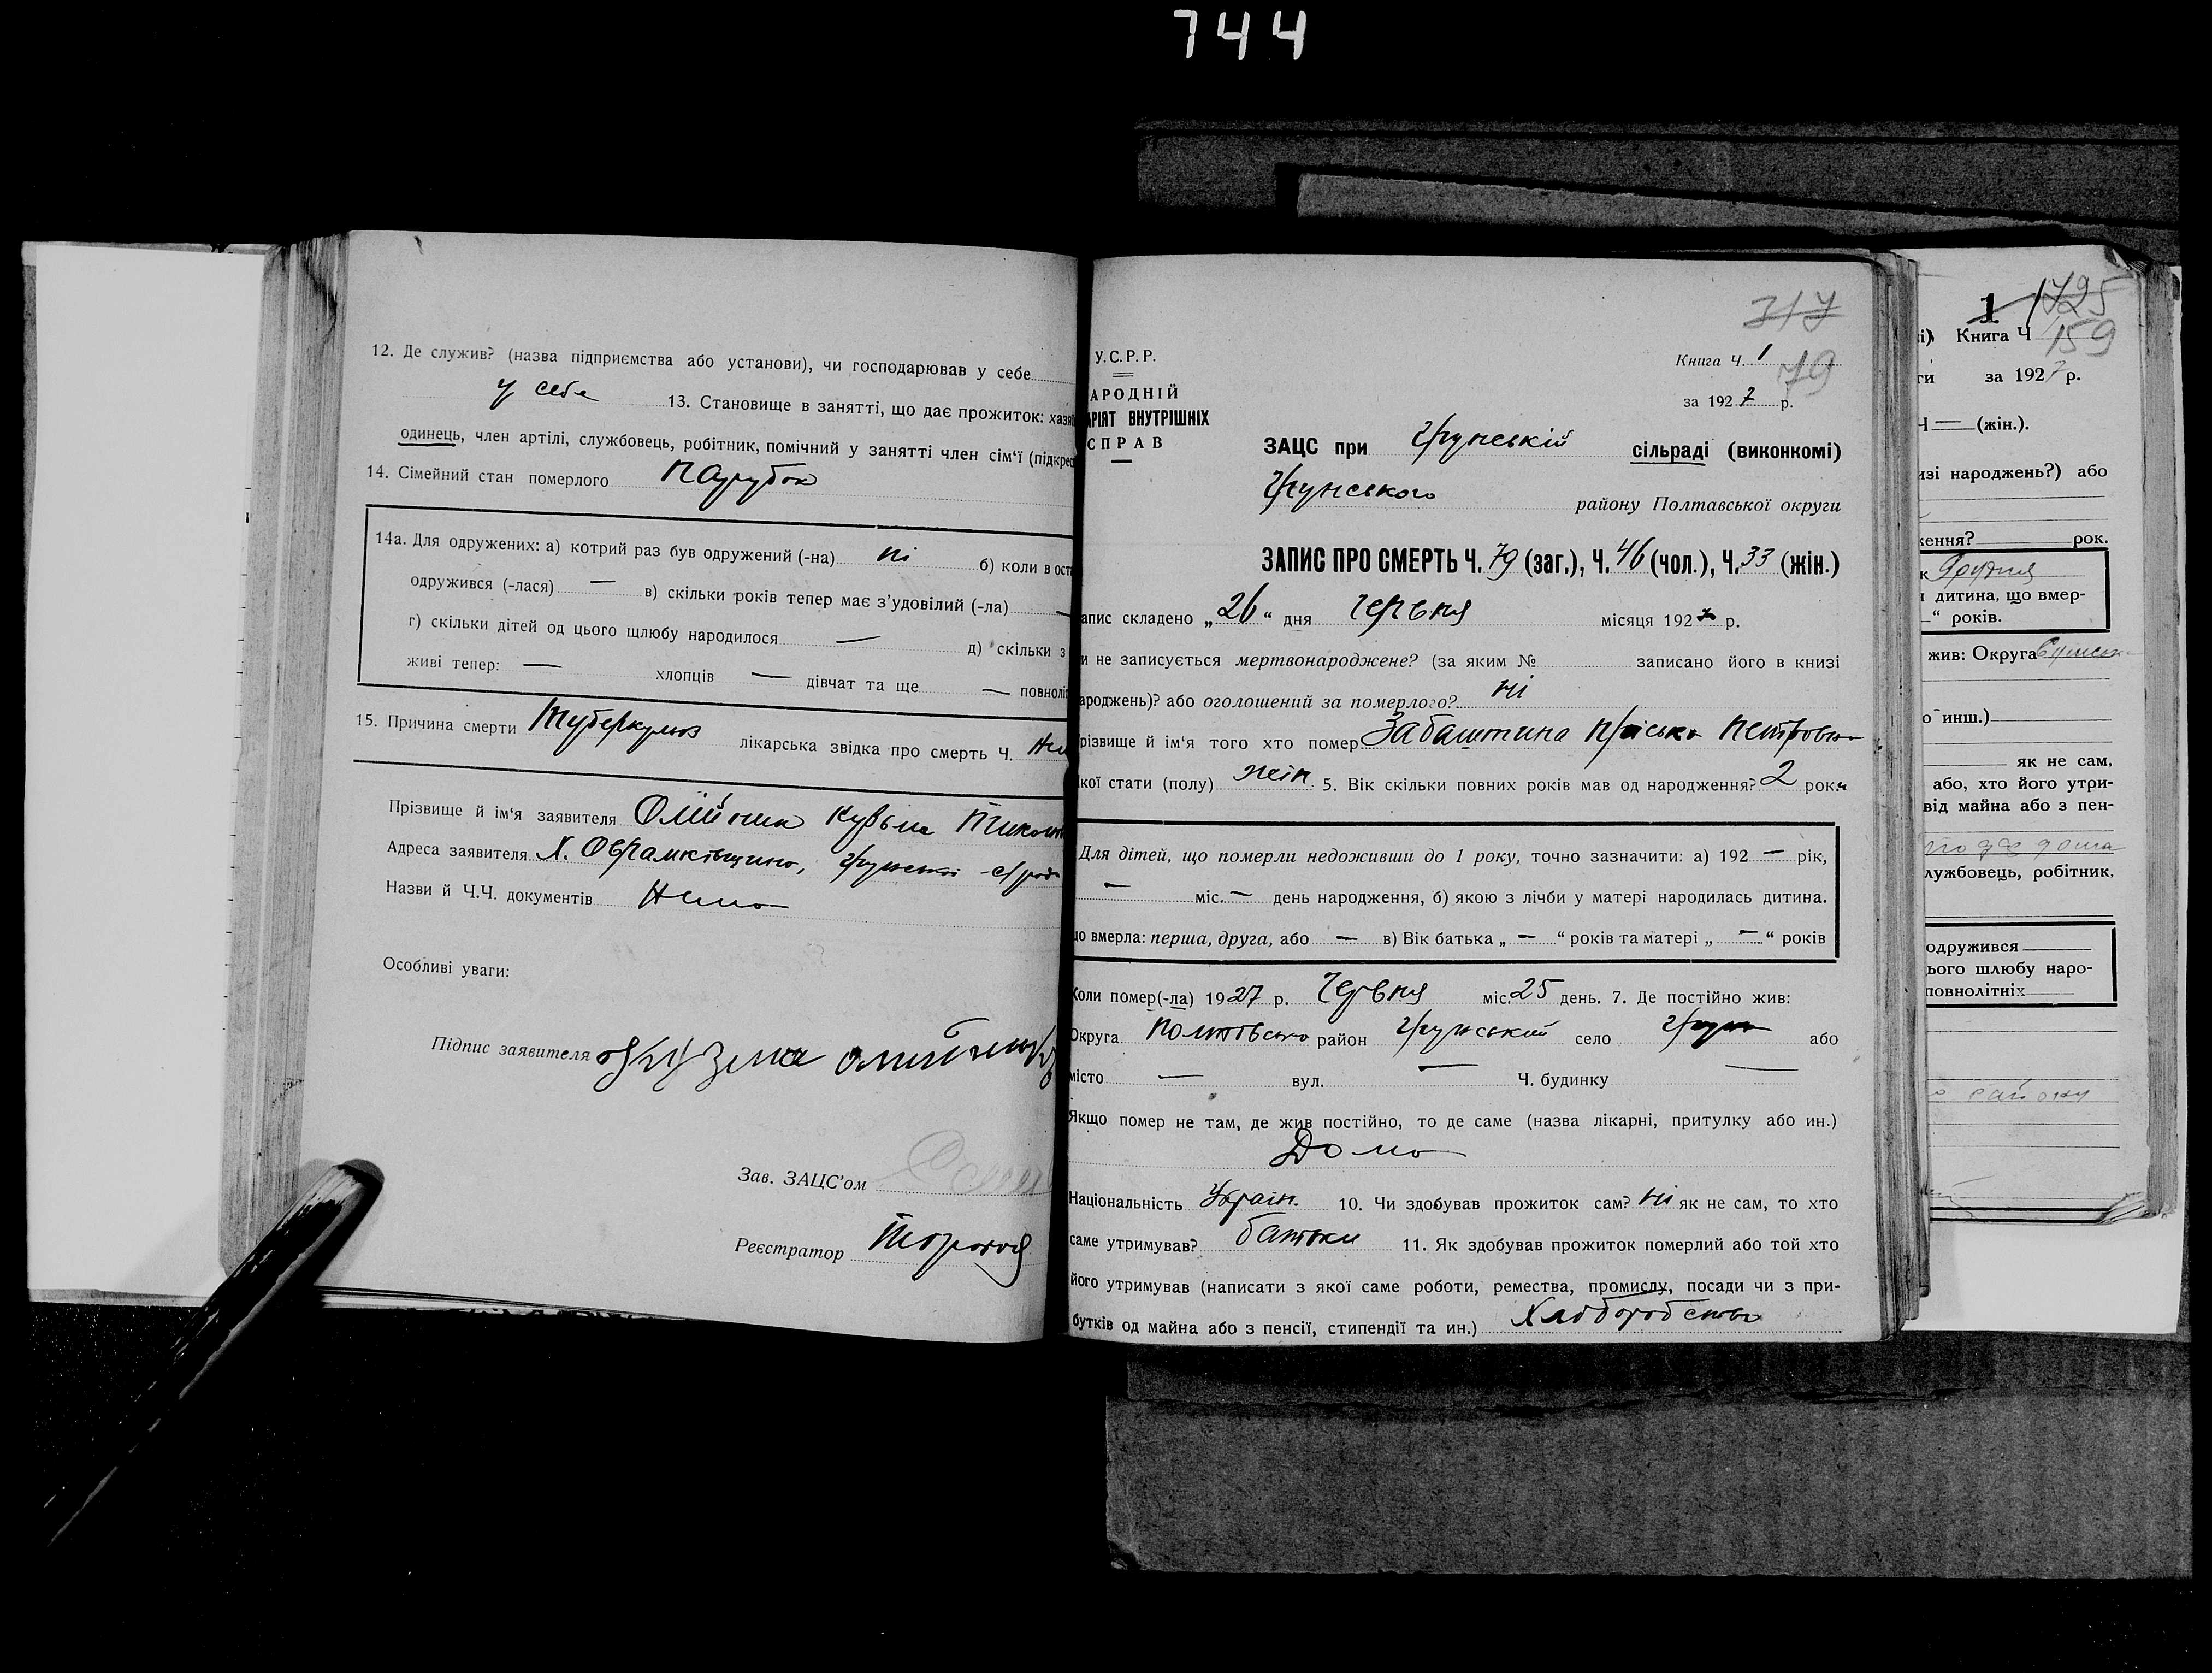 744
12. Де служив? (назва підприємства або установи), чи господарював у себе
у себе 13. Становище в занятті, що дає прожиток: хазяї
одинець, член артілі, службовець, робітник, помічний у занятті член сім'ї (підкрес
14. Сімейний стан померлого Парубок
14а. Для одружених: а) котрий раз був одружений (-на) ні б) коли в оста
одружився (-лася) — в) скільки років тепер має з'удовілий (-ла) —
г) скільки дітей од цього шлюбу народилося — д) скільки з
живі тепер: — хлопців — дівчат та ще — повноліт
15. Причина смерти Туберкульоз лікарська звідка про смерть Ч.
Прізвище й ім'я заявителя Олійник Кузьма
Адреса заявителя Х. Оврамківщина, Грунської с/ради
Назви й Ч.Ч. документів Нема
Особливі уваги:
Підпис заявителя Кузма
Зав. ЗАЦС'ом
Реєстратор
У.С.Р.Р.
АРОДНІЙ
АРІЯТ ВНУТРІШНІХ
СПРАВ
317
Книга Ч. 1
79
за 1927 р.
ЗАЦС при Грунській сільраді (виконкомі)
Грунського району Полтавської округи
ЗАПИС ПРО СМЕРТЬ Ч. 79 (заг.), Ч. 46 (чол.), Ч. 33 (жін.)
апис складено „26“ дня Червня місяця 1927 р.
и не записується мертвонароджене? (за яким № записано його в книзі
ароджень)? або оголошений за померлого? ні
різвище й ім'я того хто помер Забаштина Пріська Петровна
кої стати (полу) жін. 5. Вік скільки повних років мав од народження? 2 роки
Для дітей, що померли недоживши до 1 року, точно зазначити: а) 192 — рік,
— міс. — день народження, б) якою з лічби у матері народилась дитина.
що вмерла: перша, друга, або — в) Вік батька „ — “ років та матері „ — “ років
Коли помер(-ла) 1927 р. Червня міс. 25 день. 7. Де постійно жив:
Округа Полтавська район Грунський село Грунь або
місто — вул. — Ч. будинку —
Якщо помер не там, де жив постійно, то де саме (назва лікарні, притулку або ин.)
Дома
Національність Україн. 10. Чи здобував прожиток сам? ні як не сам, то хто
саме утримував? батьки 11. Як здобував прожиток померлий або той хто
його утримував (написати з якої саме роботи, ремества, промислу, посади чи з при-
бутків од майна або з пенсії, стипендії та ин.) Хліборобство
1 1725
і) Книга Ч 159
ги за 1927 р.
Ч — (жін.).
изі народжень?) або
ження? рок.
к Грудня
дитина, що вмер-
“ років.
жив: Округа Сумська
о инш.)
як не сам,
або, хто його утри-
від майна або з пен-
лужбовець, робітник,
одружився
ього шлюбу наро-
повнолітніх
району